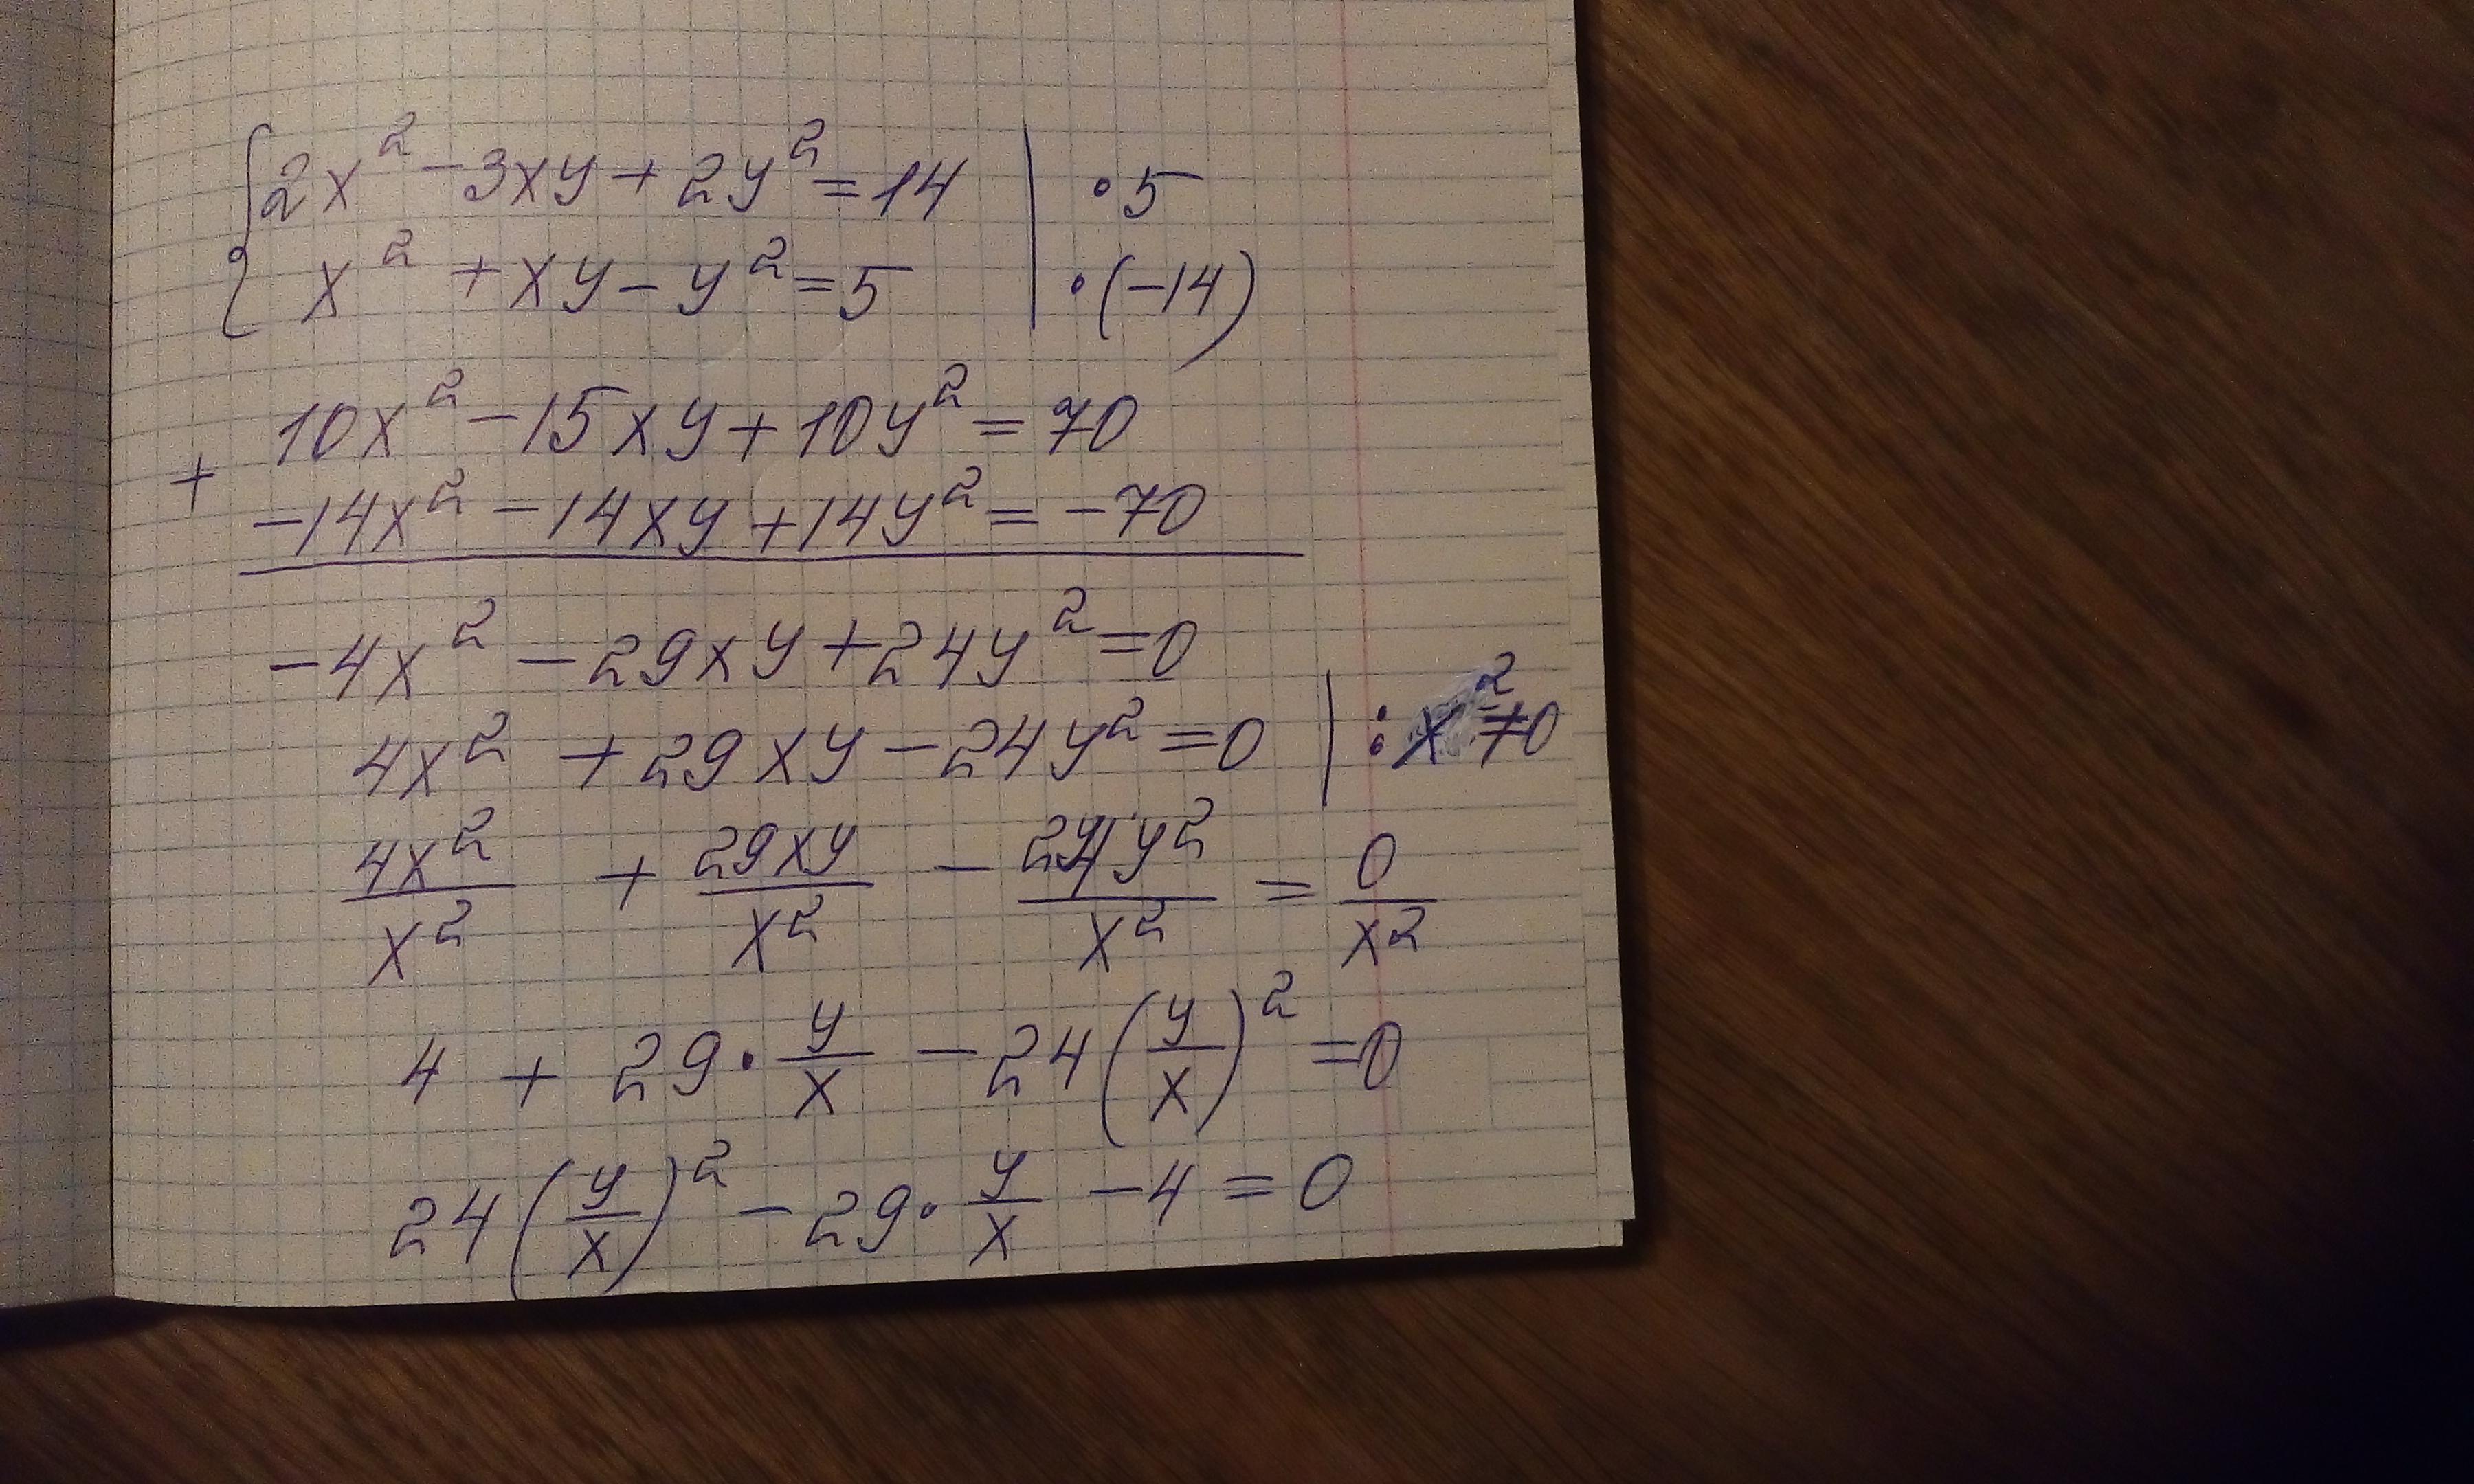 {2x² - 3xy + 2y² = 14 | · 5
x² + xy - y² = 5 | · (-14)
10x² - 15xy + 10y² = 70
+
-14x² - 14xy + 14y² = -70
-4x² - 29xy + 24y² = 0
4x² + 29xy - 24y² = 0 | : x² ≠ 0
4x²/x² + 29xy/x² - 24y²/x² = 0/x²
4 + 29 · y/x - 24(y/x)² = 0
24(y/x)² - 29 · y/x - 4 = 0